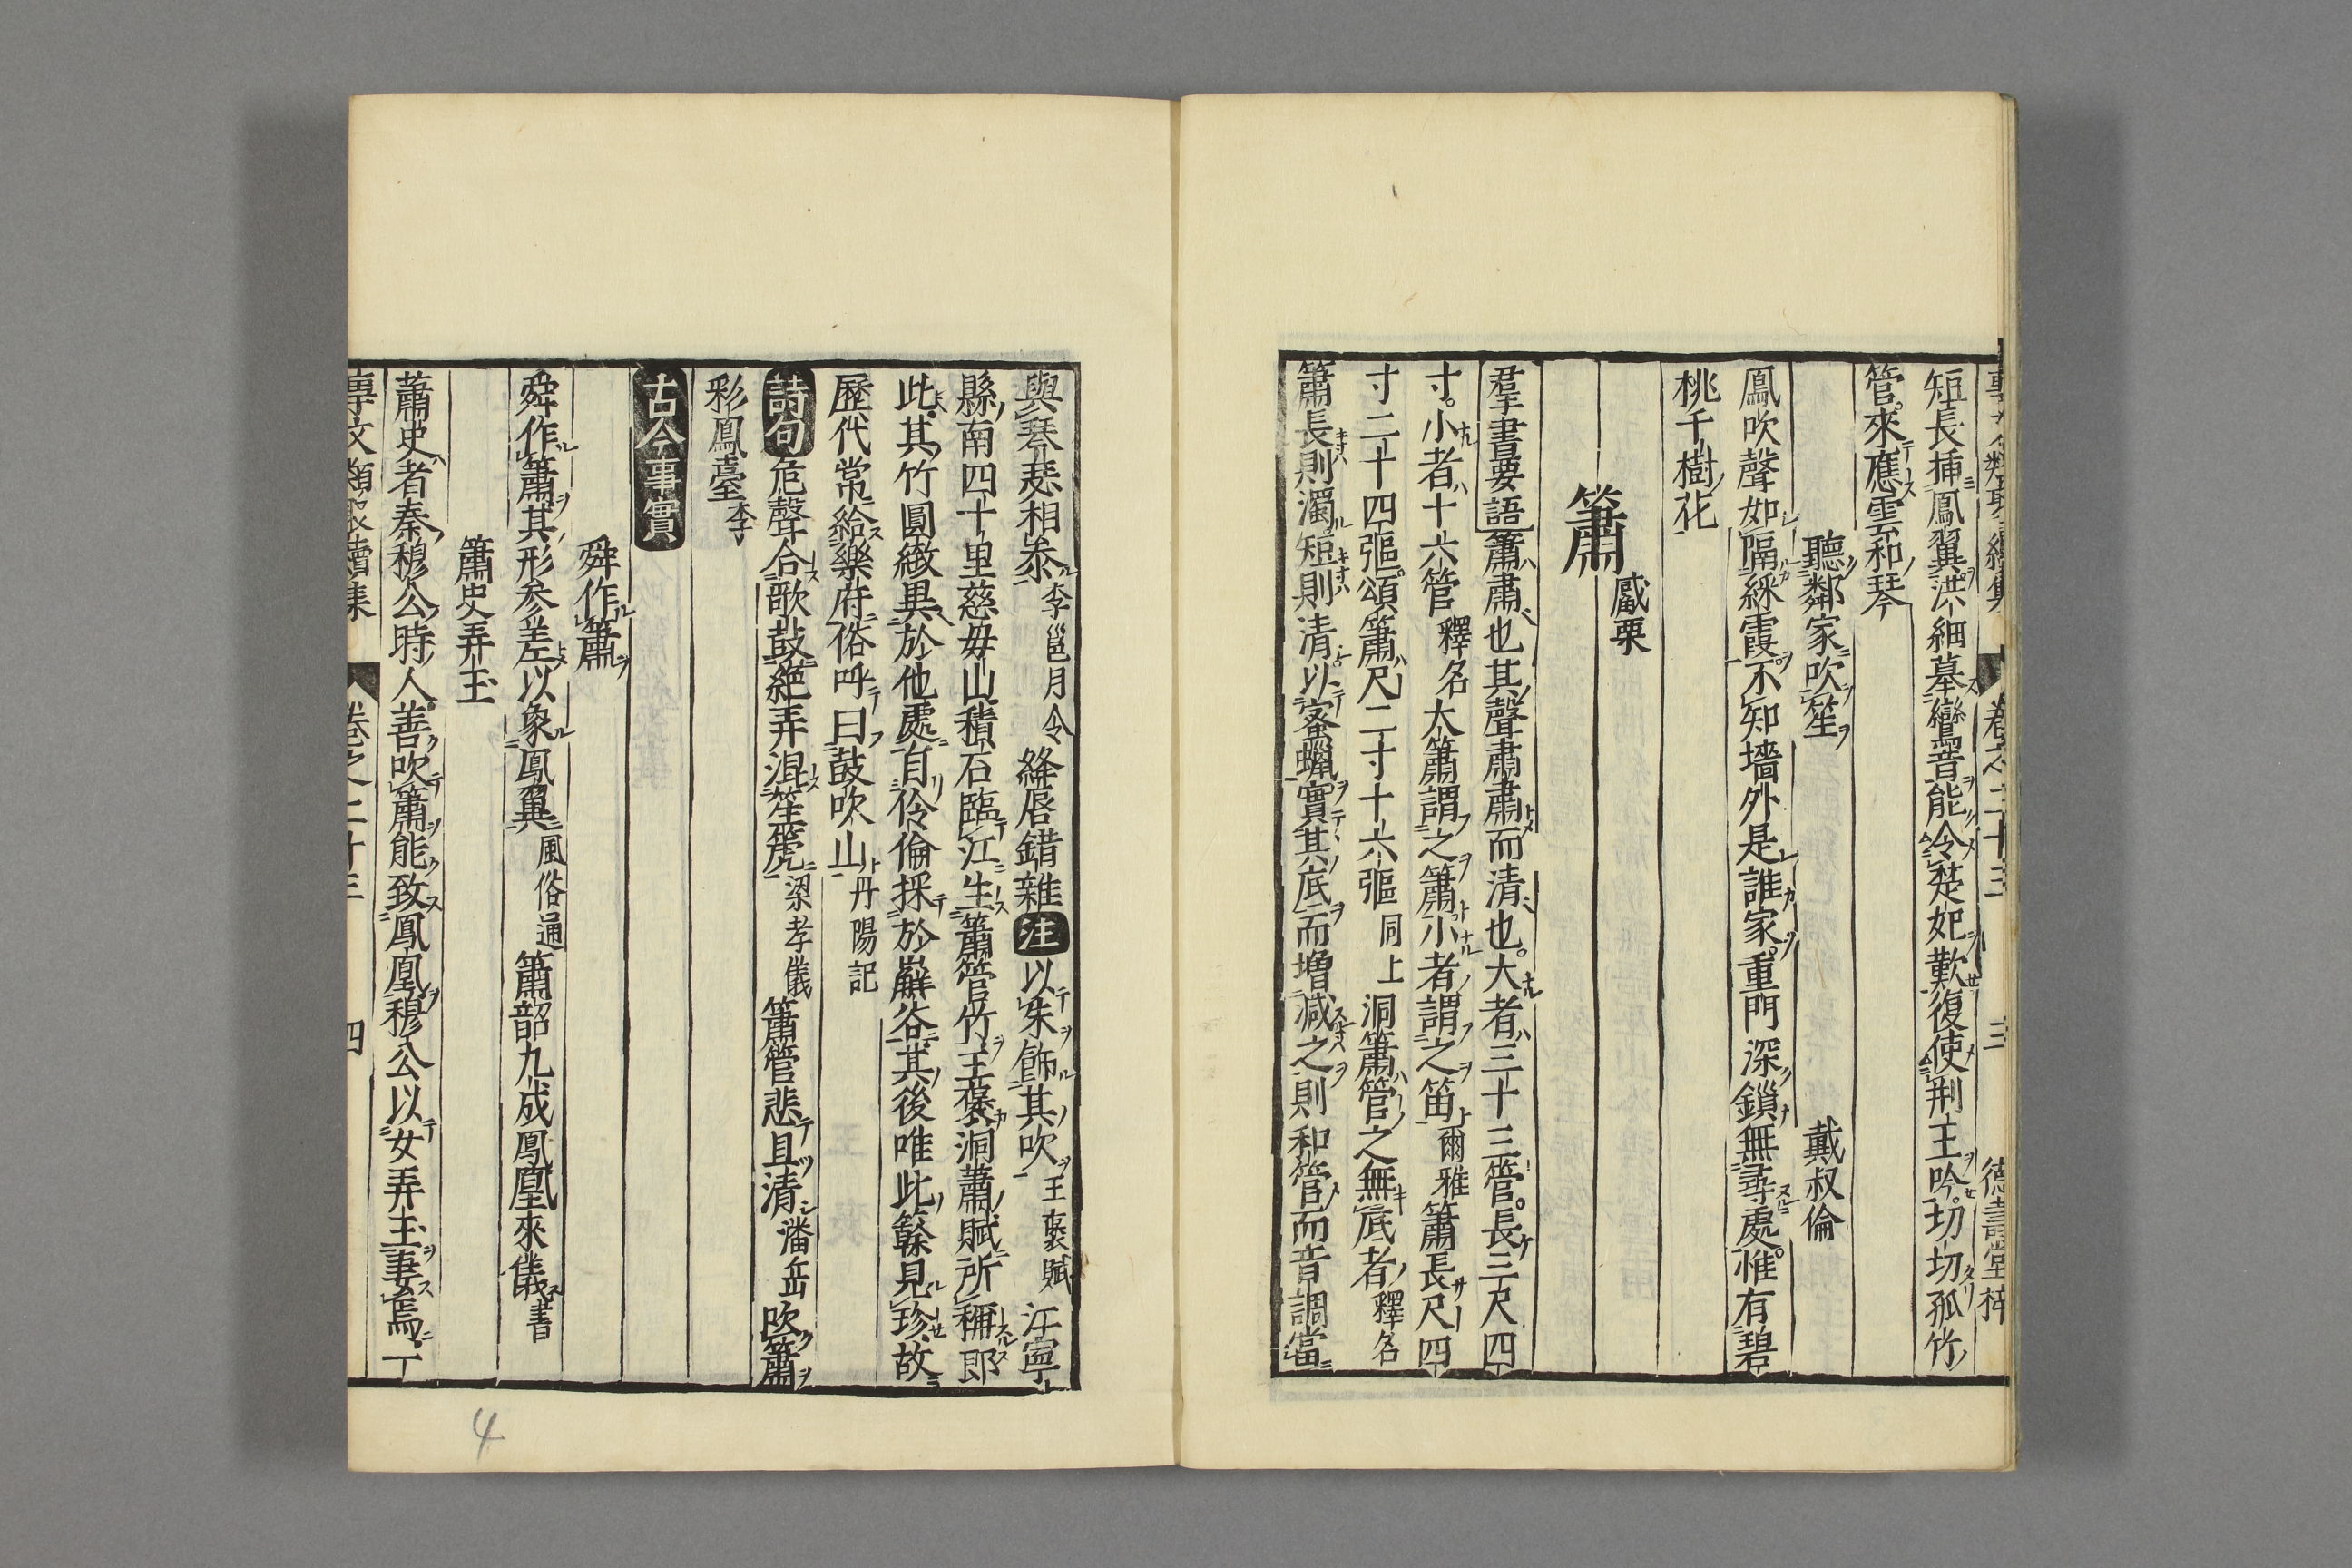 短長揷鳳翼洪細摹鸞音能令楚妃歎復使荆王吟切切孤竹
管來應雲和琴
聽鄰家吹笙 戴叔倫
鳳吹聲如隔綵霞不知墻外是誰家重門深鎖無尋處惟有碧
桃千樹花
觱栗
簫
羣書要語 簫肅也其聲肅肅而清也大者三十三管長三尺四
寸小者十六管 釋名 大簫謂之簫小者謂之笛 爾雅 簫長尺四
寸二十四彄頌簫尺二寸十六彄 同上 洞簫管之無底者 釋名
簫長則濁短則清以蜜蠟實其底而增減之則和管而音調當
與琴瑟相泰 李邕月令 絳唇錯雜 注 以朱飾其吹 王褒賦 江寧
縣南四十里慈毋山積石臨江生簫管竹王褒洞蕭賦所稱郎
此其竹圓緻異於他處自伶倫採於嶰谷其後唯此簳見珍故
歷代常給樂府俗呼曰鼓吹山 丹陽記
詩句 危聲合歌鼓絕弄混笙篪 梁孝儀 簫管悲且清 潘岳 吹簫
彩鳳臺 李
古今事實
舜作簫
舜作簫其形參差以象鳳翼 風俗通 簫韶九成鳳凰來儀 書
簫史弄玉
蕭史者秦穆公時人善吹簫能致鳳凰穆公以女弄玉妻焉一
事文類聚續集 卷之二十三 四
4